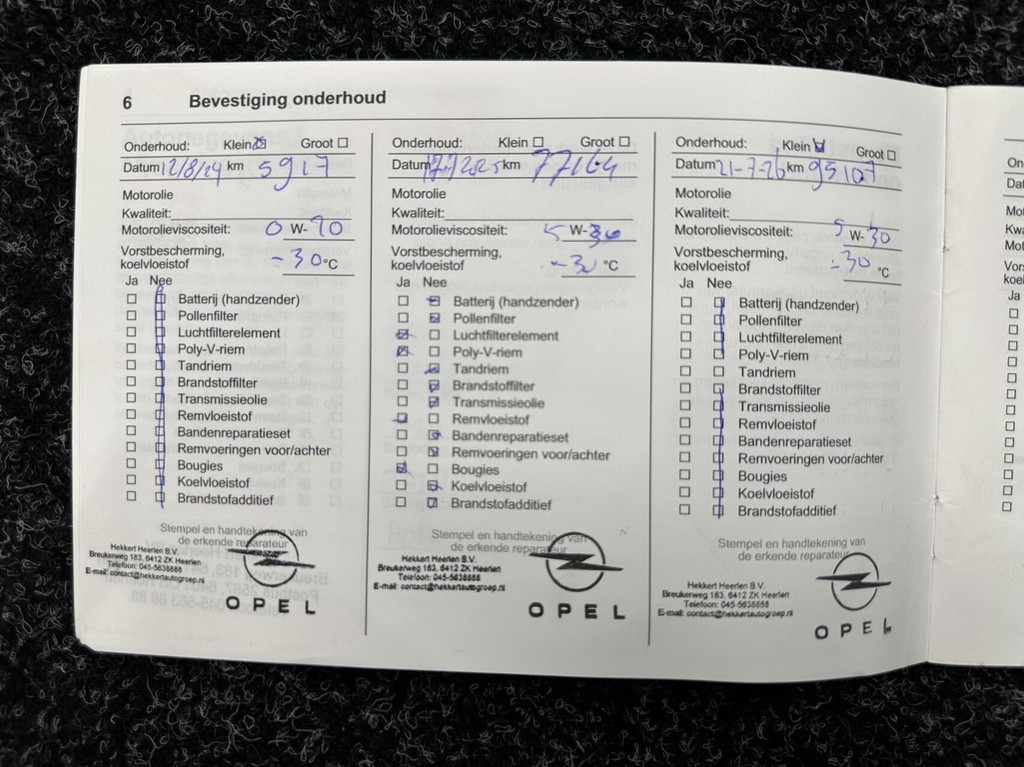 6 Bevestiging onderhoud
Onderhoud: Klein Groot
Datum 12/8/24 km 5917
Motorolie
Kwaliteit:
Motorolieviscositeit: 0 W-
Vorstbescherming,
koelvloeistof -30 °C
Ja Nee
Batterij (handzender)
Pollenfilter
Luchtfilterelement
Poly-V-riem
Tandriem
Brandstoffilter
Transmissieolie
Remvloeistof
Bandenreparatieset
Remvoeringen voor/achter
Bougies
Koelvloeistof
Brandstofadditief
Stempel en handtekening van
de erkende reparateur
Hekkert Heerlen B.V.
Breukerweg 183, 6412 ZK Heerlen
Telefoon: 045-5638888
E-mail: contact@hekkertautogroep.nl
OPEL
Onderhoud: Klein Groot
Datum km 77164
Motorolie
Kwaliteit:
Motorolieviscositeit: 5 W-30
Vorstbescherming,
koelvloeistof -30 °C
Ja Nee
Batterij (handzender)
Pollenfilter
Luchtfilterelement
Poly-V-riem
Tandriem
Brandstoffilter
Transmissieolie
Remvloeistof
Bandenreparatieset
Remvoeringen voor/achter
Bougies
Koelvloeistof
Brandstofadditief
Stempel en handtekening van
de erkende reparateur
Hekkert Heerlen B.V.
Breukerweg 183, 6412 ZK Heerlen
Telefoon: 045-5638888
E-mail: contact@hekkertautogroep.nl
OPEL
Onderhoud: Klein Groot
Datum 21-7-26 km 95107
Motorolie
Kwaliteit:
Motorolieviscositeit: 5 W-30
Vorstbescherming,
koelvloeistof -30 °C
Ja Nee
Batterij (handzender)
Pollenfilter
Luchtfilterelement
Poly-V-riem
Tandriem
Brandstoffilter
Transmissieolie
Remvloeistof
Bandenreparatieset
Remvoeringen voor/achter
Bougies
Koelvloeistof
Brandstofadditief
Stempel en handtekening van
de erkende reparateur
Hekkert Heerlen B.V.
Breukerweg 183, 6412 ZK Heerlen
Telefoon: 045-5638888
E-mail: contact@hekkertautogroep.nl
OPEL